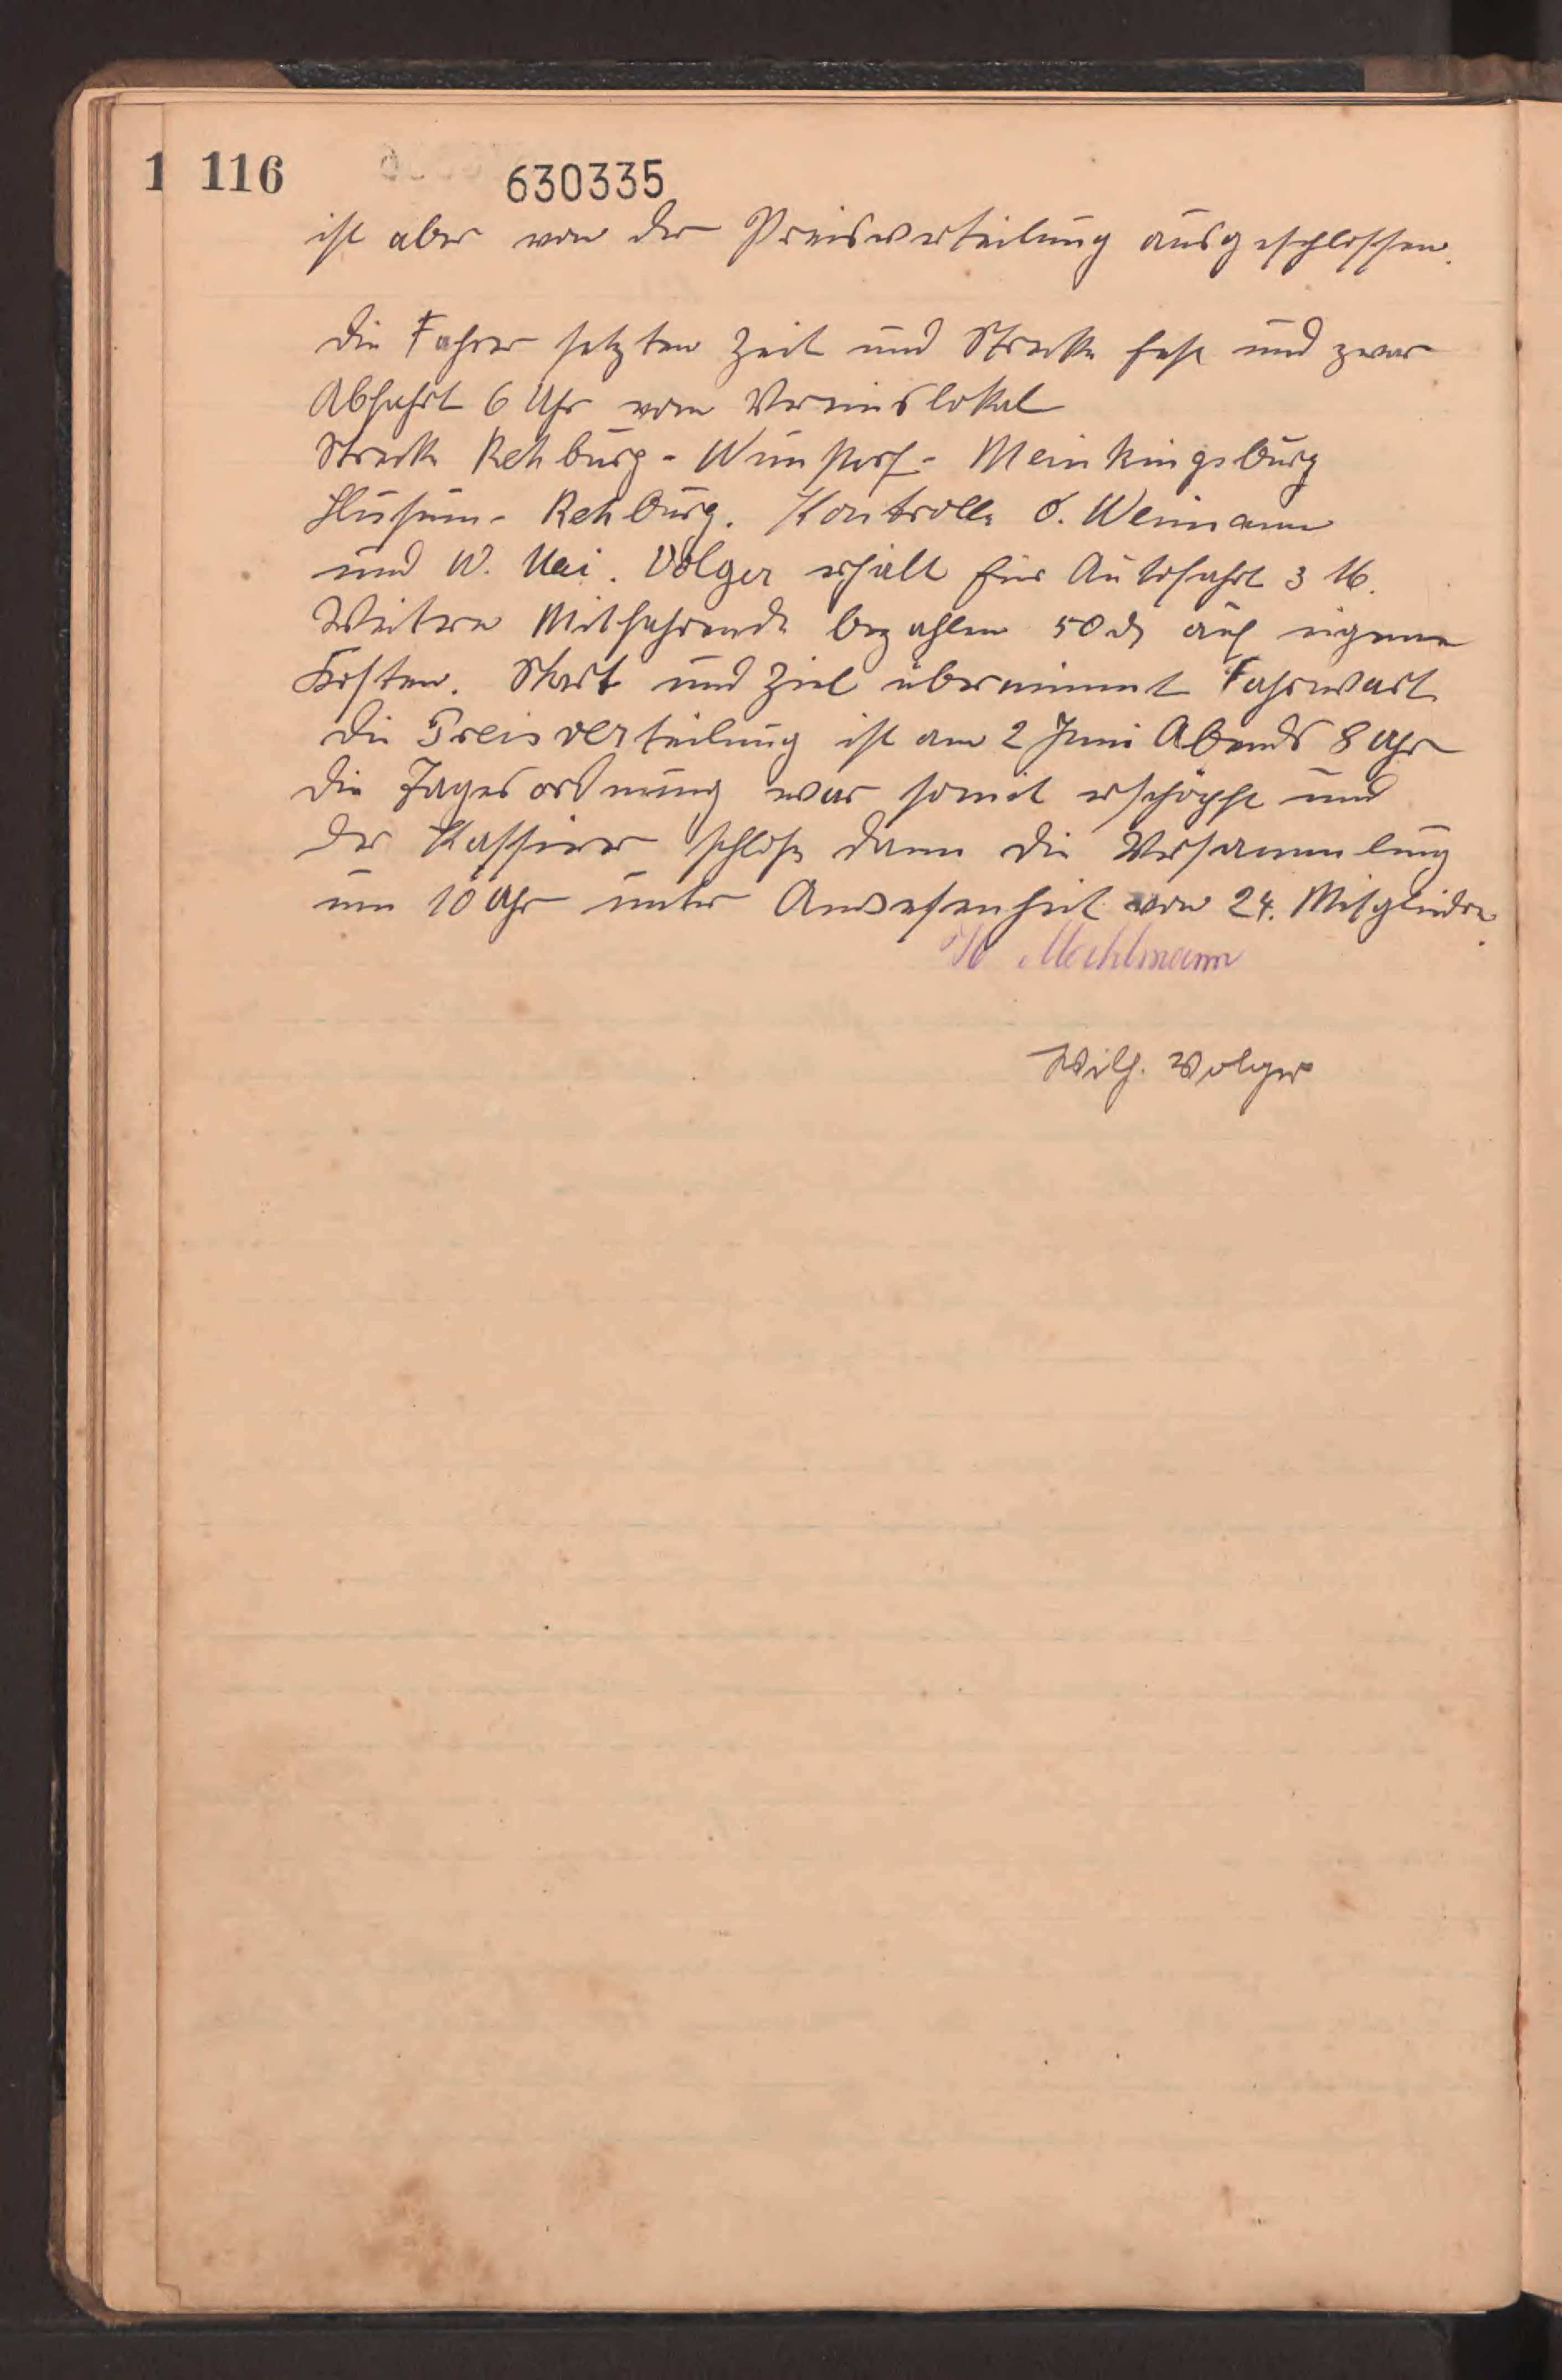 1 116
630335
ist aber von der Preisverteilung ausgeschlossen.
Die Fahrer setzten Zeit und Strecke fest und zwar
Abfahrt 6 Uhr vom Vereinslokal
Strecke Rehburg - Wunstorf - Meinkingsburg
Husum - Rehburg. Kontrolle O. Weimann
und W. Mai. Volger erhält für Autofahrt 3 M.
Weitere Mitfahrende bezahlen 50 ₰ auf eigene
Kosten. Start und Ziel übernimmt Fahrwart
Die Preisverteilung ist am 2 Juni Abends 8 Uhr
Die Tagesordnung war somit erschöpft und
der Kassirer schloß dann die Versammlung
um 10 Uhr unter Anwesenheit von 24. Mitglieder.
Mechlmann
Wilh. Volger